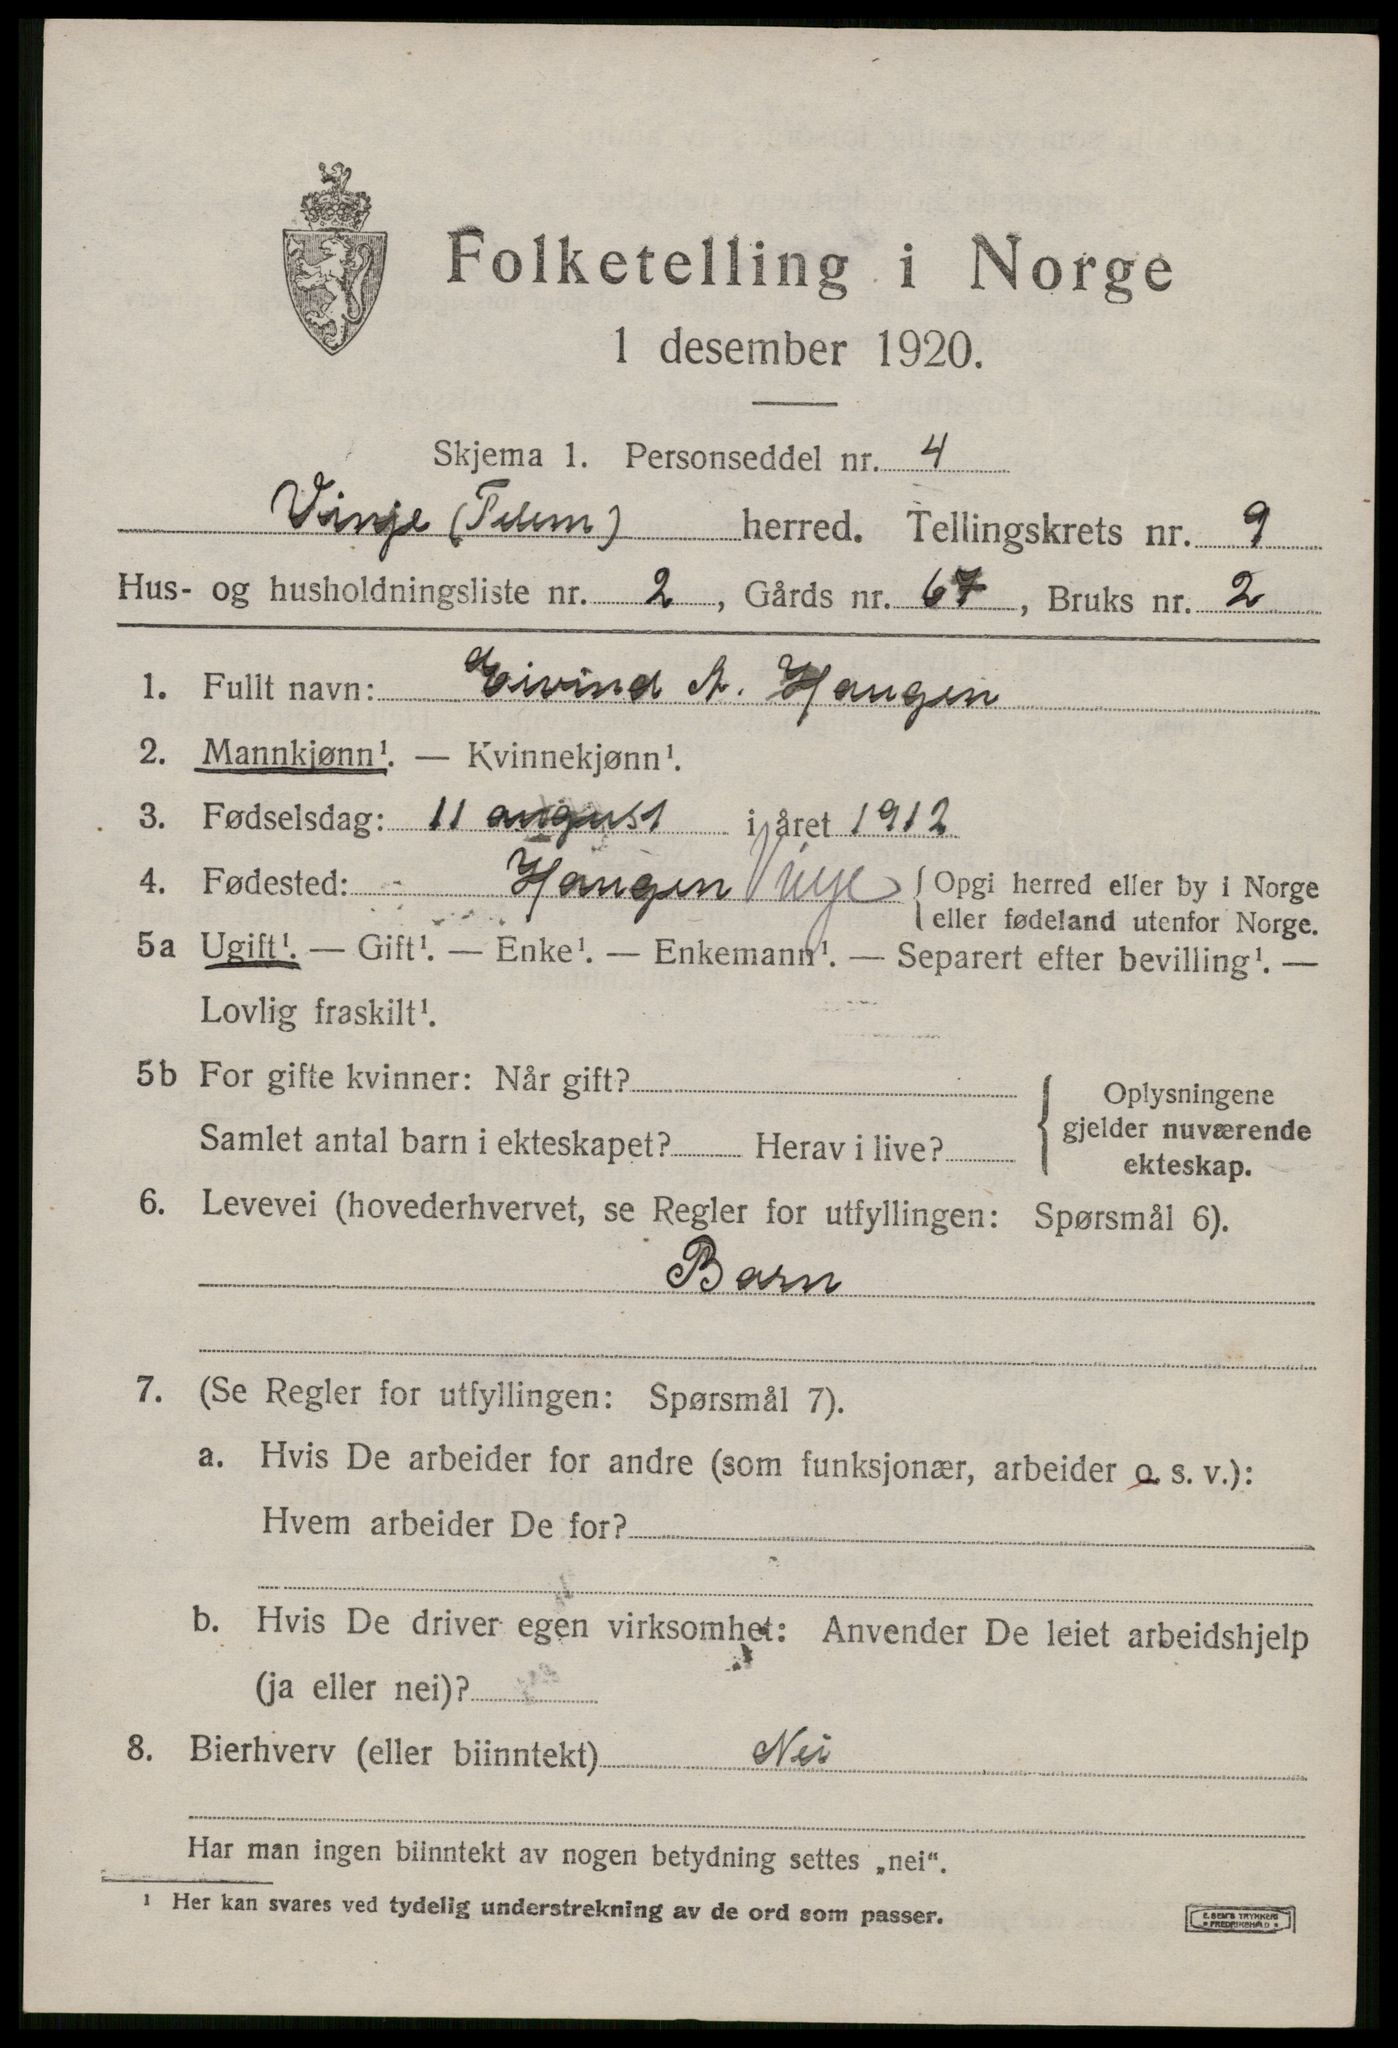 Folketelling i Norge
1 desember 1920.
Skjema 1. Personseddel nr. 4
Vinje (Telem) herred. Tellingskrets nr. 9
Hus- og husholdningsliste nr. 2, Gårds nr. 67, Bruks nr. 2
1. Fullt navn: Eivind A. Haugen
2. Mannkjønn¹. — Kvinnekjønn¹.
3. Fødselsdag: 11 august i året 1912
4. Fødested: Haugen Vinje { Opgi herred eller by i Norge
eller fødeland utenfor Norge.
5a Ugift¹. — Gift¹. — Enke¹. — Enkemann¹. — Separert efter bevilling¹. —
Lovlig fraskilt¹.
5b For gifte kvinner: Når gift?
Samlet antal barn i ekteskapet? Herav i live?
{ Oplysningene
gjelder nuværende
ekteskap.
6. Levevei (hovederhvervet, se Regler for utfyllingen: Spørsmål 6).
Barn
7. (Se Regler for utfyllingen: Spørsmål 7).
a. Hvis De arbeider for andre (som funksjonær, arbeider o. s. v.):
Hvem arbeider De for?
b. Hvis De driver egen virksomhet: Anvender De leiet arbeidshjelp
(ja eller nei)?
8. Bierhverv (eller biinntekt) Nei
Har man ingen biinntekt av nogen betydning settes „nei“.
¹ Her kan svares ved tydelig understrekning av de ord som passer.
E. SEM'S TRYKKERI
• FREDRIKSHALD •